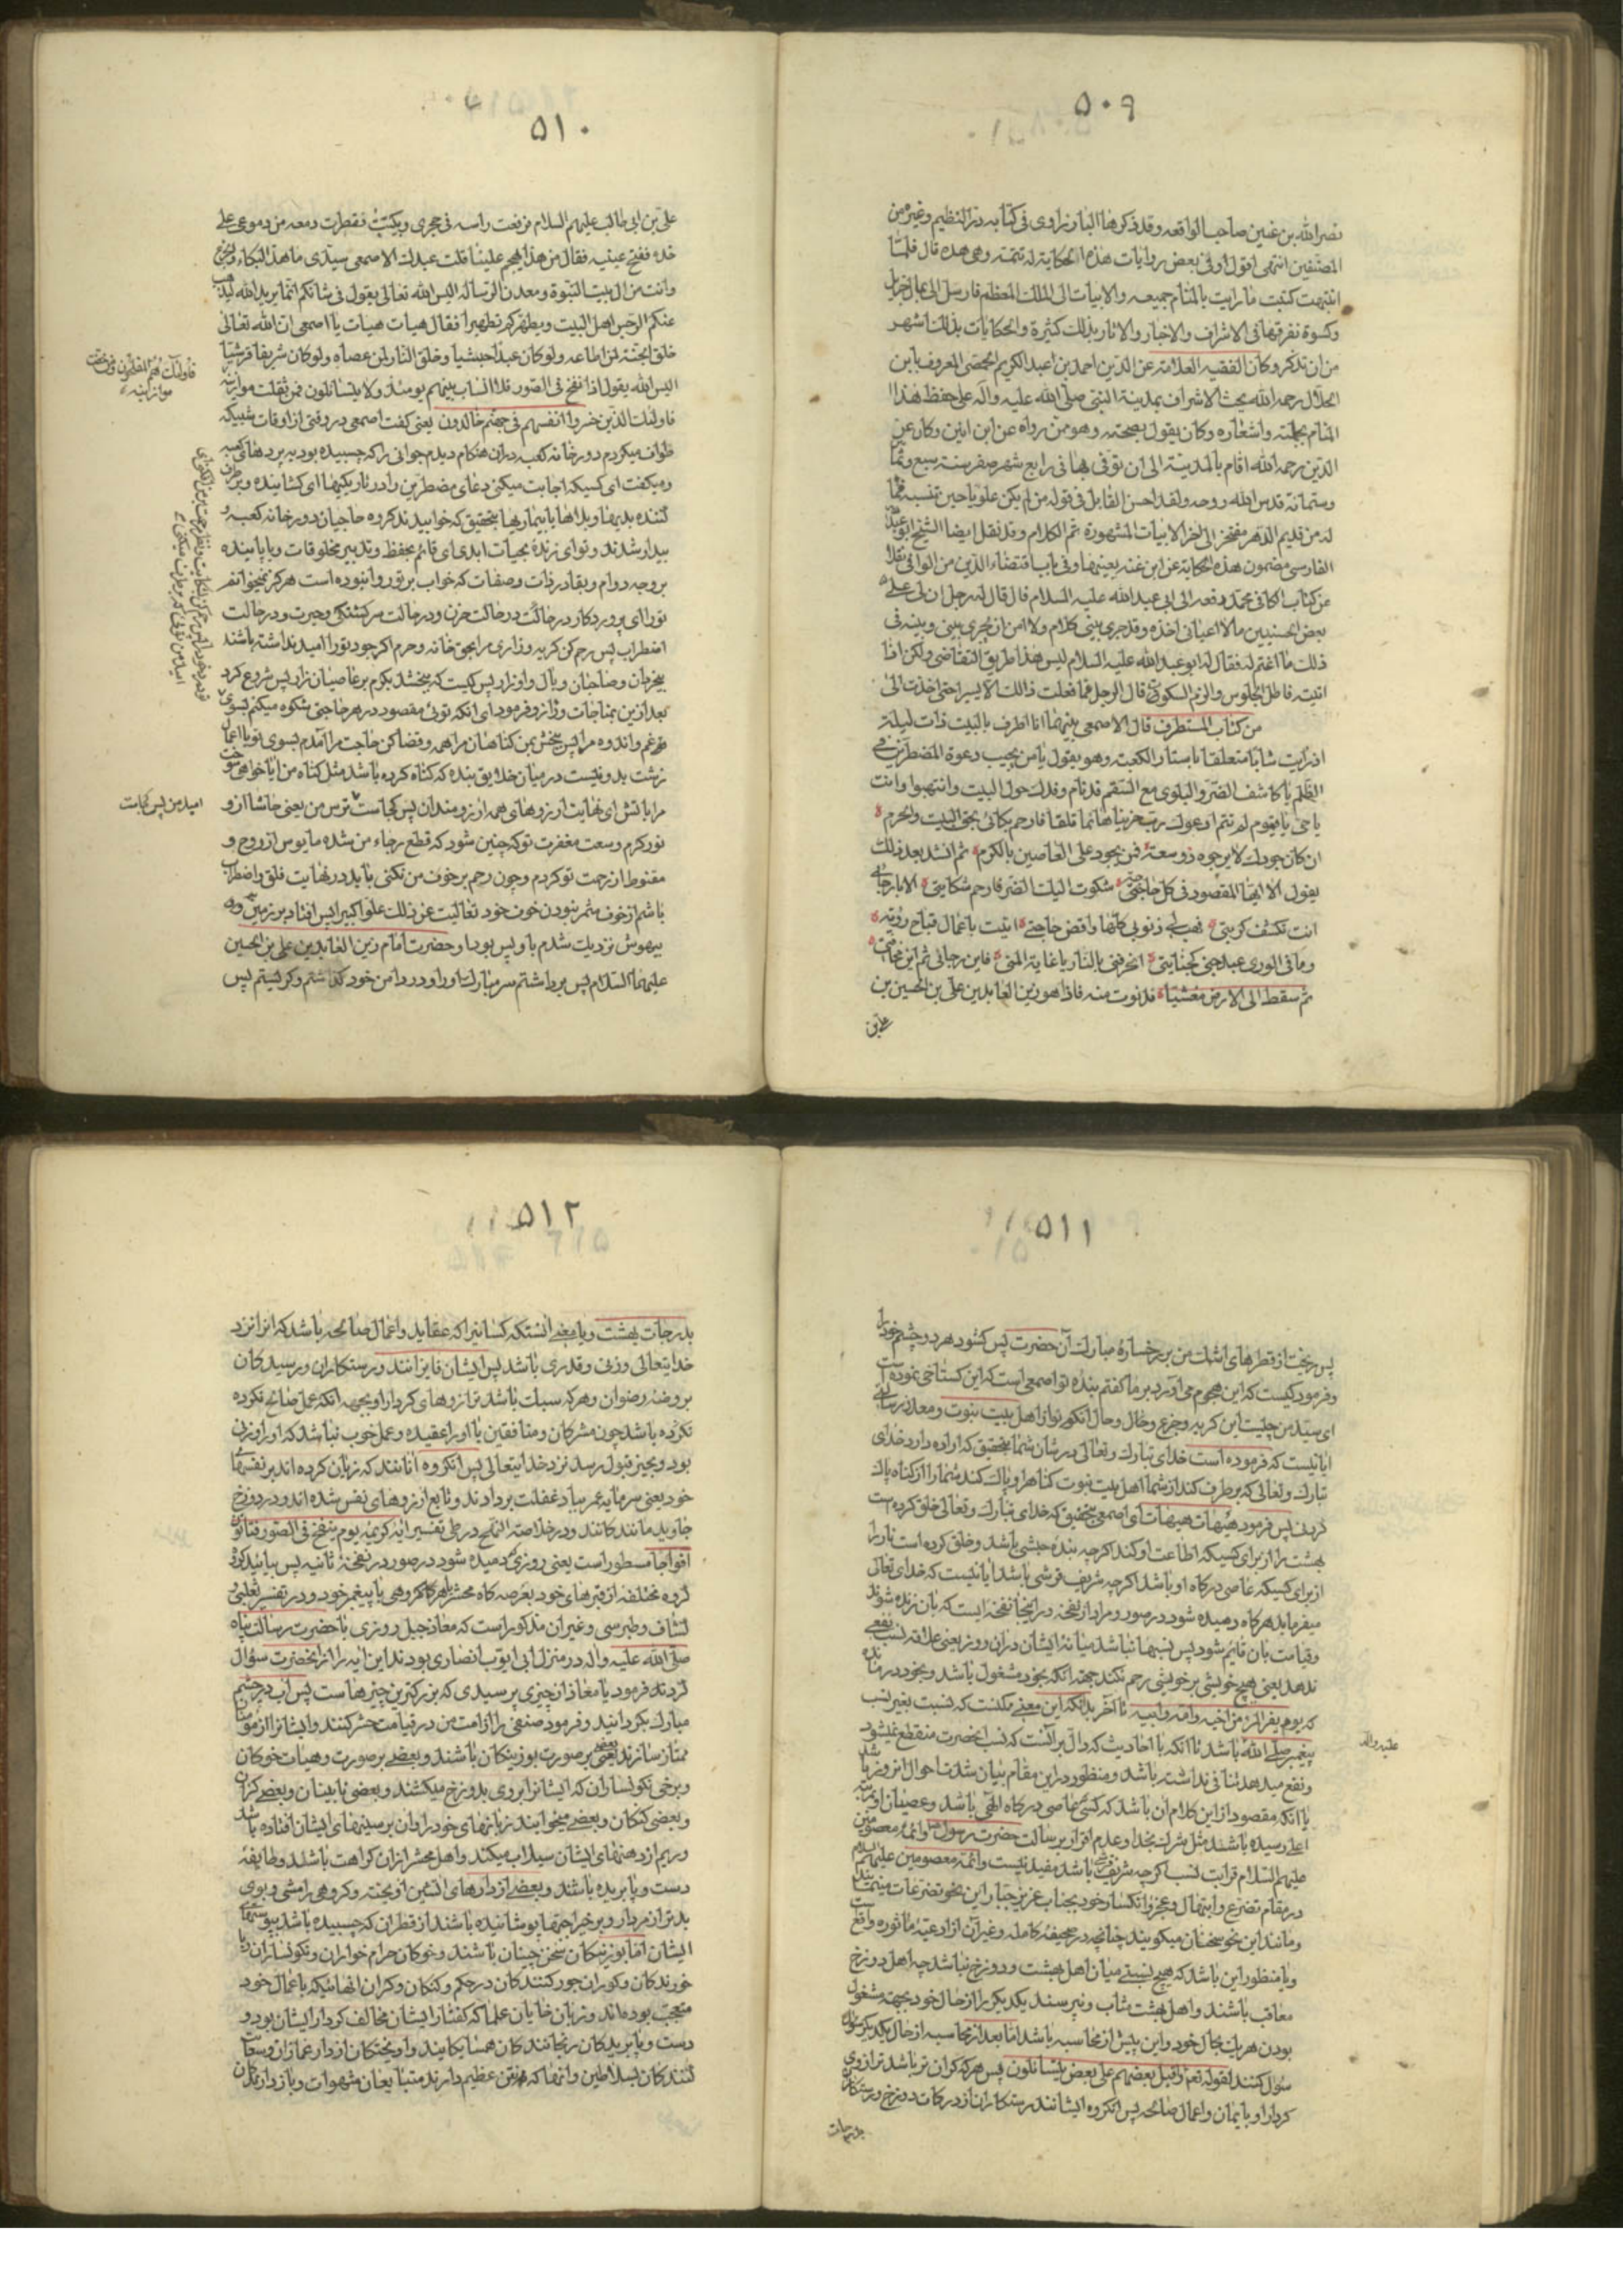 ۵۰۹
نصرالله بن عنین صاحب الواقعه وقد ذکرها البادرزاوی فی کتابه در النظیم وغیره من
المصنفین انتهی اقول وفی بعض روایات هذه الحکایة له تتمة وهی هذه قال فلما
انتبهت کتبت ما رایت بالمنام جمیعه والابیات الی الملک المعظم فارسل الی بمال جزیل
وکسوة نفرقها فی الاشراف والاخبار والاثار بذلک کثیرة والحکایات بذلک اشهر
من ان تذکر وکان الفقیه العلامة عز الدین احمد بن عبد الکریم الحمصی المعروف بابن
الخلال رحمه الله یحث الاشراف بمدینة النبی صلی الله علیه وآله علی حفظ هذا
المنام بجملته واشعاره وکان یقول بصحته وهو ممن رواه عن ابن اینین وکان عز
الدین رحمه الله اقام بالمدینة الی ان توفی بها فی رابع شهر صفر سنة سبع وثما
وستمائه قدس الله روحه ولقد احسن القایل فی قوله من لم یکن علویا حین تنسبه فما
له من قدیم الدهر مفتخر الی اخر الابیات المشهورة تم الکلام وقد نقل ایضا الشیخ ابو عبدالله
الفارسی مضمون هذه الحکایة عن ابن عنه بعینها وفی باب اقتضاء الدین من الوافی نقلا
عن کتاب الکافی محمد رفعه الی ابی عبد الله علیه السلام قال قال له رجل ان لی علی
بعض الحسنیین مالا اعیانی اخذه وقد جری بینی کلام ولا امن ان یجری بینی وبینه فی
ذلک ما اغتم له فقال له ابو عبد الله علیه السلام لیس هذا طریق التقاضی ولکن اذا
اتیته فاطل الجلوس والزم السکوت قال الرجل فما فعلت ذالک الا یسیر احتی اخذت الی
من کتاب المستطرف قال الاصمعی بینما انا اطوف بالبیت ذات لیلة
اذ رایت شابا متعلقا باستار الکعبة وهو یقول یا من یجیب دعوة المضطرین فی
الظلم یا کاشف الضر والبلوی مع السقم قد نام وفدک حول البیت وانتبهوا وانت
یا حی یا قیوم لم تنم ادعوک رب حزینا هائما قلقا فارحم بکائی بحق البیت والحرم
ان کان جودک لا یرجوه ذو سعة فمن یجود علی العاصین بالکرم ثم انشد بعد ذلک
یقول الا ایها المقصود فی کل حاجتی شکوت الیک الضر فارحم شکایتی الا یا رجائی
انت تکشف کربتی فهب لی ذنوبی کلها واقض حاجتی اتیت باعمال قباح ردیه
وما فی الوری عبد جنی کجنایتی اتحرقنی بالنار یا غایة المنی فاین رجائی ثم این مخافتی
ثم سقط الی الارض مغشیا فدنوت منه فاذا هو زین العابدین علی بن الحسین بن
علی بن
۵۱۰
علی بن ابی طالب علیهم السلام فرفعت راسه فی حجری وبکیت فقطرت دمعه من دموعی علی
خده ففتح عینیه فقال من هذا یهجم علینا قلت عبدک الاصمعی سیدی ما هذا البکاء والجزع
وانت من ال بیت النبوة ومعدن الرسالة الیس الله تعالی یقول فی شانکم انما یرید الله لیذهب
عنکم الرجس اهل البیت ویطهرکم تطهیرا فقال هیهات هیهات یا اصمعی ان الله تعالی
خلق الجنة لمن اطاعه ولو کان عبدا حبشیا وخلق النار لمن عصاه ولو کان شریفا قرشیا
الیس الله یقول اذا نفخ فی الصور فلا انساب بینهم یومئذ ولا یتسائلون فمن ثقلت موازینه
فاولئک الذین خسروا انفسهم فی جهنم خالدون یعنی گفت اصمعی در وقتی از اوقات شبیکه
طواف میکردم دور خانه کعبه دران هنکام دیدم جوانی را که چسبیده بود به پردهای کعبه
ومیکفت ای کسیکه اجابت میکنی دعای مضطرین را در تاریکیها ای کشاینده وبرطرف
کننده بدیها وبلاها با بیماریها بتحقیق که خوابیدند کروه حاجیان دور خانه کعبه و
بیدار شدند وتو ای زنده بحیات ابدی ای قائم بحفظ وتدبیر مخلوقات ویا پاینده
بروجه دوام وبقا در ذات وصفات که خواب بر تو روا نبوده است هرکز میخوانم
تو را ای پروردکار در حالت حزن ودر حالت سرکشتکی وحیرت ودر حالت
اضطراب پس رحم کن کریه وزاری مرا بحق خانه وحرم اکر جود تو را امید نداشته باشند
بیخردان وصاحبان وبال واوزار پس کیست که ببخشد بکرم بر عاصیان زار پس شروع کرد
بعد ازین بمناجات وزار وفرمود ای انکه توئی مقصود در هر حاجتی شکوه میکنم بسوی تو
غم واندوه مرا پس ببخش بمن کناهان مرا همه وقضا کن حاجت مرا آمدم بسوی تو با اعمال
زشت بد ونیست در میان خلایق بنده که کناه کرده باشد مثل کناه من ایا خواهی سوخت
مرا باتش ای نهایت ارزوهای همه ارزومندان پس کجاست ترس من یعنی حاشا از تو
تو در کرم وسعت مغفرت تو که چنین شود که قطع رجاء من شده مایوس از روح و
مقنوط از رحمت تو کردم وچون رحم بر خوف من نکنی باید در نهایت قلق واضطراب
باشم از خوف مثمر نبودن خوف خود تعالیت عن ذلک علوا کبیرا پس افتاد بر زمین
بیهوش نزدیک شدم باو پس بود او حضرت امام زین العابدین علی بن الحسین
علیهما السلام پس برداشتم سر مبارک او را ودر دامن خود کذاشتم وکریستم پس
فاولئک هم المفلحون ومن خفت
موازینه
امید من پس کجاست
۵۱۱
پس ریخت از قطرهای اشک من بر رخسارهٔ مبارک آن حضرت پس کشود هر دو چشم خود را
وفرمود کیست که این هجوم می آورد بر ما کفتم بنده تو اصمعی است که این کستاخی نموده است
ای سید من چیست این کریه وجزع وحال وحال آنکه تو از اهل بیت نبوت ومعدن رسالتی
ایا نیست که فرموده است خدای تبارک وتعالی در شان شما بتحقیق که اراده دارد خدای
تبارک وتعالی که برطرف کند از شما اهل بیت نبوت کناه را وپاک کند شما را از کناه پاک
کردنی پس فرمود هیهات هیهات ای اصمعی بتحقیق که خدای تبارک وتعالی خلق کرده است
بهشت را از برای کسیکه اطاعت او کند اکرچه بنده حبشی باشد وخلق کرده است نار را
از برای کسیکه عاصی درکاه او باشد اکرچه شریف قرشی باشد ایا نیست که خدای تعالی
میفرماید هرکاه دمیده شود در صور ومراد از نفخه در اینجا نفخه ایست که بان زنده شوند
وقیامت بان قایم شود پس نسبها نباشد میانهٔ ایشان دران روز یعنی علاقه نسب نفعی
ندهد یعنی هیچ خویشی بر خویشی رحم نکند بجهة انکه بخود مشغول باشد وبخود درمانده
که یوم یفر المرء من اخیه وامه وابیه تا آخر بدانکه این معنی ممکنست که نسبت بغیر نسب
پیغمبر صلی الله باشد تا انکه با احادیث که دال بر انست که نسب انحضرت منقطع نمیشود
ونفع میدهد تنافی نداشته باشد ومنظور در این مقام بیان شدت احوال انروز باشد
یا انکه مقصود از این کلام ان باشد که کسی عاصی درکاه الهی باشد وعصیان او بمرتبه
اعلی رسیده باشند مثل شرک بخدا وعدم اقرار برسالت حضرت رسول وائمهٔ معصومین
علیهم السلام قرابت نسب اکرچه شریف قرشی باشد مفید نیست وائمه معصومین علیهم السلام
در مقام تضرع وابتهال وعجز وانکسار خود بجناب عزیز جبار این نحو تضرعات مینمایند
ومانند این نحو سخنان میکویند چنانچه در صحیفهٔ کامله وغیر آن از ادعیهٔ ماثوره واقع است
ویا منظور این باشد که هیچ نسبتی میان اهل بهشت ودوزخ نباشد چه اهل دوزخ
معاقب باشند واهل بهشت مثاب ونپرسند یکدیکر را از حال خود بجهة مشغول
بودن هریک بحال خود واین پیش از محاسبه باشد اما بعد از محاسبه از حال یکدیکر سؤال
سؤال کنند لقوله تع واقبل بعضهم علی بعض یتسائلون پس هرکه کران تر باشد ترازوی
کردار او بایمان واعمال صالحه پس انکروه ایشانند رستکاران از درکات دوزخ ورستکاران
بدرجات
علیه واله
۵۱۲
بدرجات بهشت ویا معنی انستکه کسانیرا که عقاید واعمال صالحه باشد که انرا نزد
خدایتعالی وزنی وقدری باشد پس ایشان فایزانند ورستکاران ورسیدکان
بروضهٔ رضوان وهرکه سبک باشد ترازوهای کردار او بجهة انکه عمل صالح نکرده
نکرده باشد چون مشرکان ومنافقین یا او را عقیده وعمل خوب نباشد که او را وزن
بود وبحیز قبول رسد نزد خدایتعالی پس انکروه آنانند که زیان کرده اند بر نفسهای
خود یعنی سرمایه عمر بباد غفلت بردادند وتابع ارزوهای نفس شده اند ودر دوزخ
جاوید مانند کانند ودر خلاصة المنهج در طی تفسیر ایه کریمه یوم ینفخ فی الصور فتاتون
افواجا مسطور است یعنی روزی که دمیده شود در صور در نفخهٔ ثانیه پس بیائید کروه
کروه مختلفه از قبرهای خود بعرصه کاه محشر هر کروهی با پیغمبر خود ودر تفسیر ثعلبی و
کشاف وطبرسی وغیر ان مذکور است که معاذ جبل روزی با حضرت رسالت پناه
صلی الله علیه واله در منزل ابی ایوب انصاری بودند این ایه را از انحضرت سؤال
کردند فرمود یا معاذ از چیزی پرسیدی که بزرکترین چیزهاست پس آب در چشم
مبارک بکردانید وفرمود ده صنف را از امت من در قیامت حشر کنند وایشانرا از مؤمنان
ممتاز سازند بعضی بر صورت بوزینکان باشند وبعضی بر صورت وهیات خوکان
وبرخی نکونساران که ایشانرا بروی بدوزخ میکشند وبعضی نابینان وبعضی کران
وبعضی کنکان وبعضی میخوایند زبانهای خود را وان بر سینهای ایشان افتاده باشد
وریم از دهنهای ایشان سیلاب میکند واهل محشر ازان کراهت باشند وطایفهٔ
دست وپا بریده باشند وبعضی از دارهای اتشین اویخته وکروهی را مشی وبوی
بدتر از مردار وبرخی را جبّها پوشانیده باشند از قطران که چسبیده باشد بپوستهای
ایشان اما بوزینکان سخن چینان باشند وخوکان حرام خواران ونکونساران ربا
خورندکان وکوران جور کنندکان در حکم وکنکان وکران انهائیکه باعمال خود
متعجب بوده اند وزبان خایان علما که کفتار ایشان مخالف کردار ایشان بود و
دست وپا بریدکان رنجانندکان همسایکانید واویختکان از دار غمازان وسعایت
کنندکان بسلاطین وانها که نتن عظیم دارند متتابعان شهوات وبازدارندکان